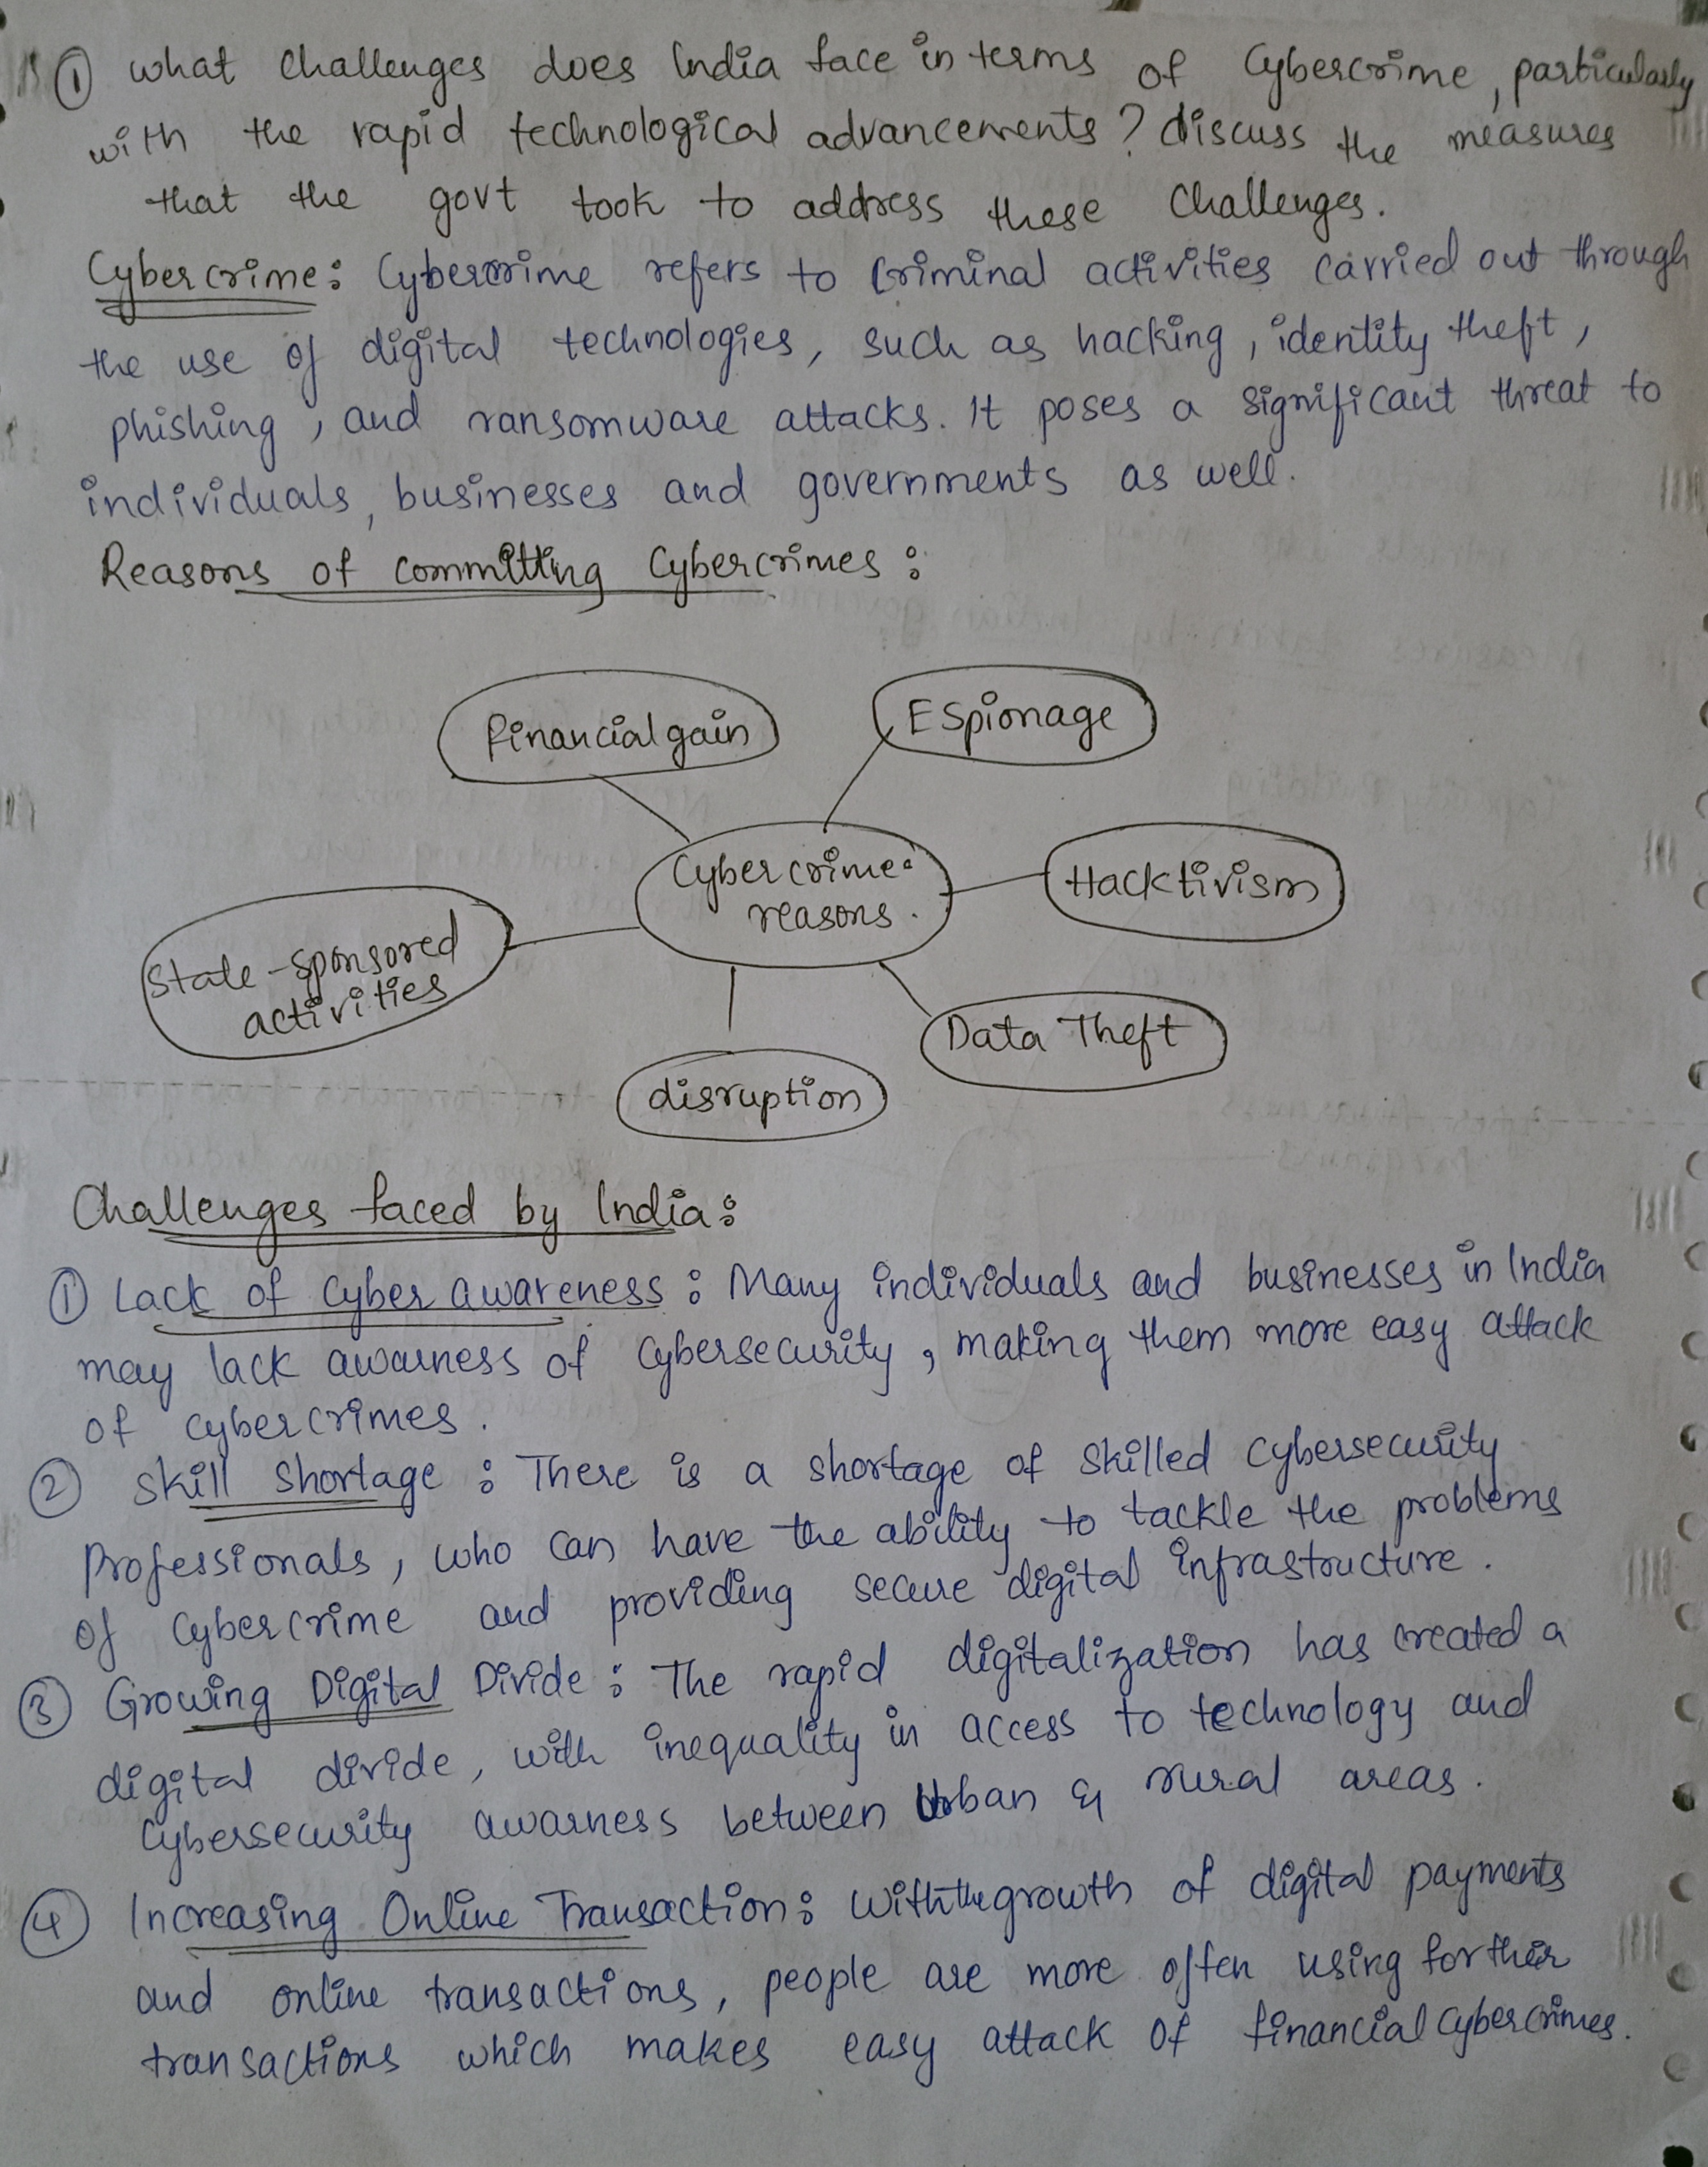 ① what challenges does India face in terms of Cybercrime, particularly
with the rapid technological advancements? discuss the measures
that the govt took to address these Challenges.
Cybercrime: Cybercrime refers to Criminal activities carried out through
the use of digital technologies, such as hacking, identity theft,
phishing, and ransomware attacks. It poses a significant threat to
individuals, businesses and governments as well.
Reasons of committing Cybercrimes:
financial gain
Espionage
Cybercrime:
reasons.
Hacktivism
State-sponsored
activities
Data Theft
disruption
Challenges faced by India:
① Lack of Cyber awareness: Many individuals and businesses in India
may lack awarness of Cybersecurity, making them more easy attack
of cybercrimes.
② Skill Shortage: There is a shortage of skilled cybersecurity
Professionals, who can have the ability to tackle the problems
of Cybercrime and providing secure digital infrastructure.
③ Growing Digital Divide: The rapid digitalization has created a
digital divide, with inequality in access to technology and
Cybersecurity awarness between Urban & rural areas.
④ Increasing Online Transaction: with the growth of digital payments
and online transactions, people are more often using for their
transactions which makes easy attack of financial Cybercrimes.